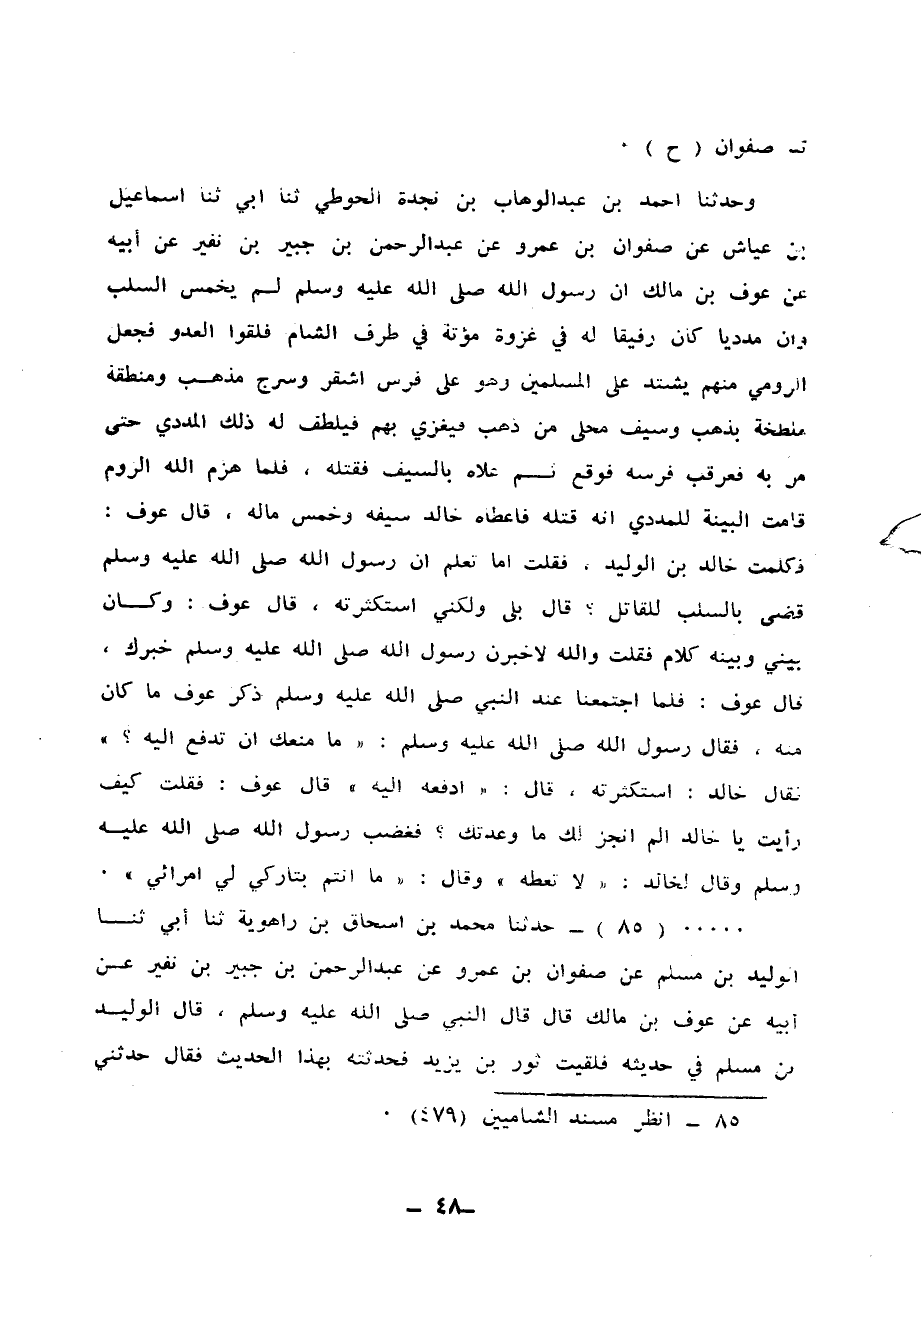 ثـ صفوان ( ح ) ٠
وحدثنا احمد بن عبدالوهاب بن نجدة الحوطي ثنا ابي ثنا اسماعيل
بن عياش عن صفوان بن عمرو عن عبدالرحمن بن جبير بن نفير عن أبيه
عن عوف بن مالك ان رسول الله صلى الله عليه وسلم لـم يخمس السلب
وان مدديا كان رفيقا له في غزوة مؤتة في طرف الشام فلقوا العدو فجعل
الرومي منهم يشتد على المسلمين وهو على فرس اشقر وسرج مذهـب ومنطقة
ملطخة بذهب وسيف محلى من ذهب فيغزي بهم فيلطف له ذلك المددي حتى
مر به فعرقب فرسه فوقع ثــم علاه بالسيف فقتله ، فلما هزم الله الروم
قامت البينة للمددي انه قتله فاعطاه خالد سيفه وخمس ماله ، قال عوف :
فكلمت خالد بن الوليد ، فقلت اما تعلم ان رسول الله صلى الله عليه وسلم
قضى بالسلب للقاتل ؟ قال بلى ولكني استكثرته ، قال عوف : وكــان
بيني وبينه كلام فقلت والله لاخبرن رسول الله صلى الله عليه وسلم خبرك ،
قال عوف : فلما اجتمعنا عند النبي صلى الله عليه وسلم ذكر عوف ما كان
منه ، فقال رسول الله صلى الله عليه وسلم : « ما منعك ان تدفع اليه ؟ »
فقال خالد : استكثرته ، قال : « ادفعه اليه » قال عوف : فقلت كيف
رأيت يا خالد الم انجز لك ما وعدتك ؟ فغضب رسول الله صلى الله عليــه
وسلم وقال لخالد : « لا تعطه » وقال : « ما انتم بتاركي لي امرائي » ٠
٠٠٠٠٠ ( ٨٥ ) ــ حدثنا محمد بن اسحاق بن راهوية ثنا أبي ثنــا
الوليد بن مسلم عن صفوان بن عمرو عن عبدالرحمن بن جبير بن نفير عــن
أبيه عن عوف بن مالك قال قال النبي صلى الله عليه وسلم ، قال الوليــد
بن مسلم في حديثه فلقيت ثور بن يزيد فحدثته بهذا الحديث فقال حدثني
٨٥ ــ انظر مسند الشاميين (٤٧٩) ٠
ــ ٤٨ ــ